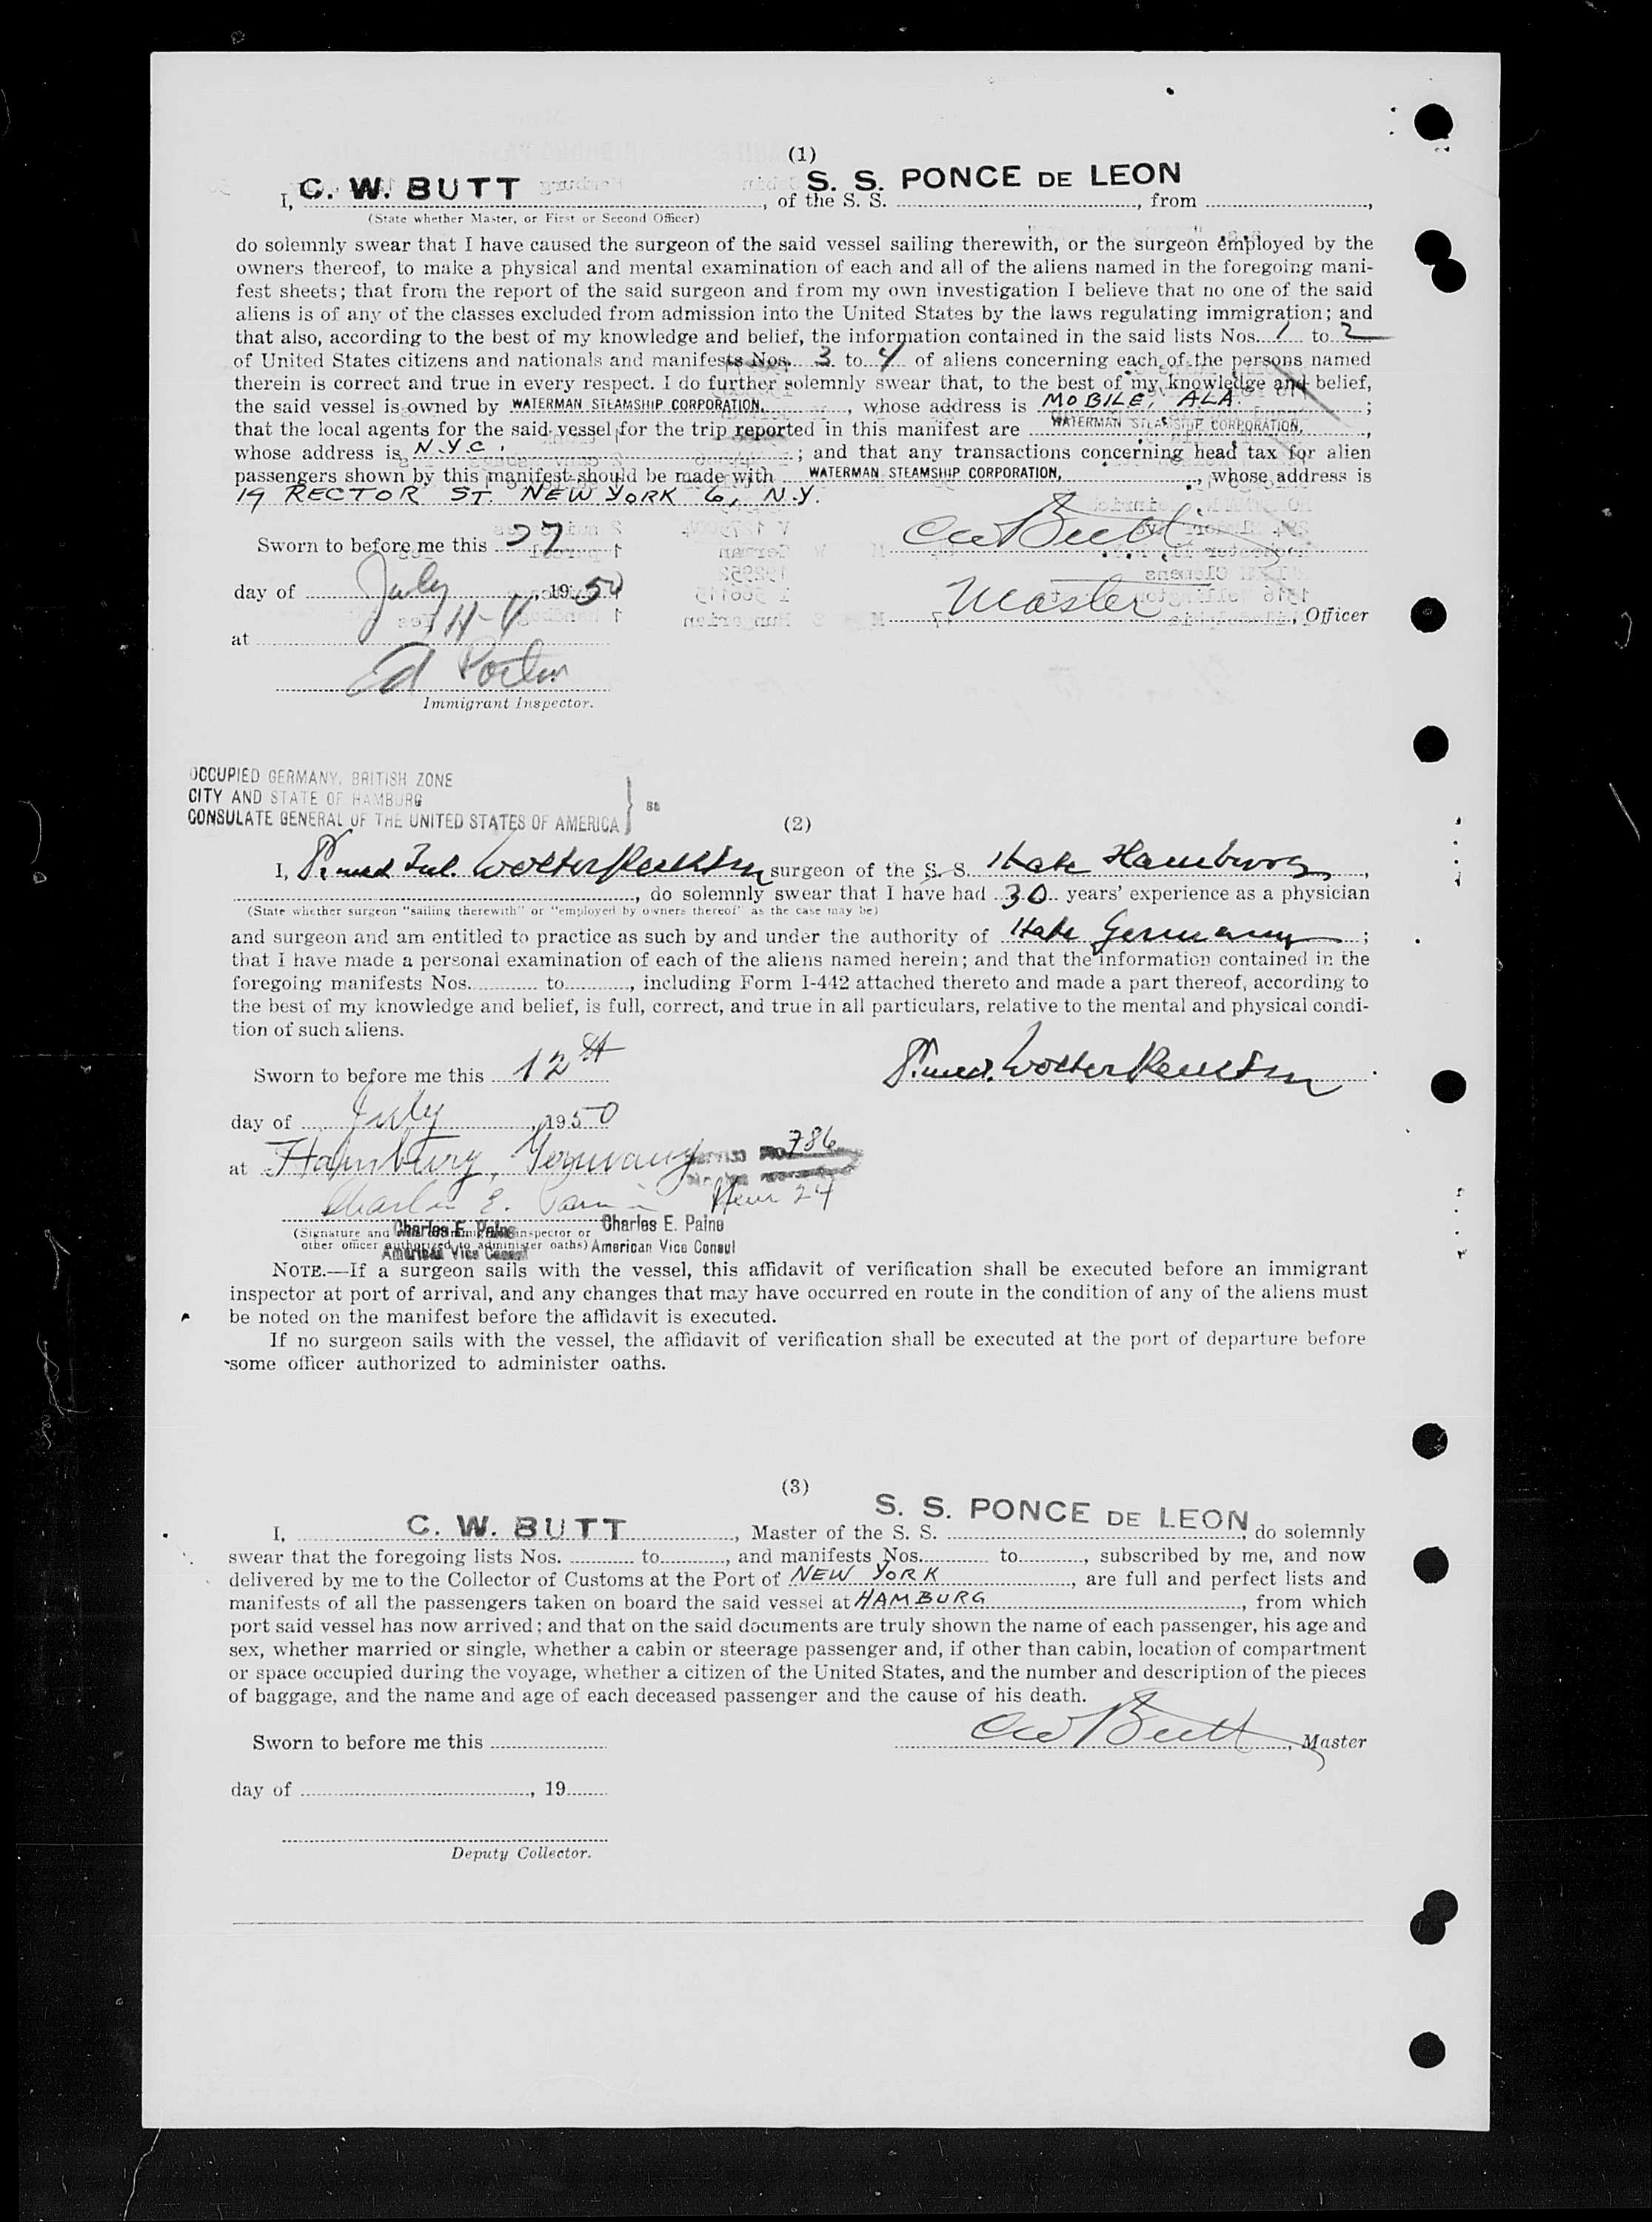 (1)
I, C. W. BUTT, of the S. S. S. S. PONCE DE LEON, from
(State whether Master, or First or Second Officer)
do solemnly swear that I have caused the surgeon of the said vessel sailing therewith, or the surgeon employed by the
owners thereof, to make a physical and mental examination of each and all of the aliens named in the foregoing mani-
fest sheets; that from the report of the said surgeon and from my own investigation I believe that no one of the said
aliens is of any of the classes excluded from admission into the United States by the laws regulating immigration; and
that also, according to the best of my knowledge and belief, the information contained in the said lists Nos. 1 to 2
of United States citizens and nationals and manifests Nos. 3 to 4 of aliens concerning each of the persons named
therein is correct and true in every respect. I do further solemnly swear that, to the best of my knowledge and belief,
the said vessel is owned by WATERMAN STEAMSHIP CORPORATION, whose address is MOBILE, ALA.;
that the local agents for the said vessel for the trip reported in this manifest are WATERMAN STEAMSHIP CORPORATION,
whose address is N.Y.C.; and that any transactions concerning head tax for alien
passengers shown by this manifest should be made with WATERMAN STEAMSHIP CORPORATION, whose address is
19 RECTOR ST. NEW YORK 6, N.Y.
Sworn to before me this 27
CW Butt
day of July, 1950
Master, Officer
at N-Y
Ed Porter
Immigrant Inspector.
OCCUPIED GERMANY, BRITISH ZONE
CITY AND STATE OF HAMBURG
CONSULATE GENERAL OF THE UNITED STATES OF AMERICA } ss
(2)
I, surgeon of the S. S. State Hamburg,
, do solemnly swear that I have had 30 years' experience as a physician
(State whether surgeon "sailing therewith" or "employed by owners thereof" as the case may be)
and surgeon and am entitled to practice as such by and under the authority of State Germany;
that I have made a personal examination of each of the aliens named herein; and that the information contained in the
foregoing manifests Nos. to, including Form I-442 attached thereto and made a part thereof, according to
the best of my knowledge and belief, is full, correct, and true in all particulars, relative to the mental and physical condi-
tion of such aliens.
Sworn to before me this 12th
day of July, 1950
at Hamburg, Germany 786
Charles E. Paine Item 24
(Signature and Immigrant Inspector or Charles E. Paine
other officer authorized to administer oaths) American Vice Consul
Charles E. Paine
American Vice Consul
NOTE.—If a surgeon sails with the vessel, this affidavit of verification shall be executed before an immigrant
inspector at port of arrival, and any changes that may have occurred en route in the condition of any of the aliens must
be noted on the manifest before the affidavit is executed.
If no surgeon sails with the vessel, the affidavit of verification shall be executed at the port of departure before
some officer authorized to administer oaths.
(3)
I, C. W. BUTT, Master of the S. S. S. S. PONCE DE LEON, do solemnly
swear that the foregoing lists Nos. to, and manifests Nos. to, subscribed by me, and now
delivered by me to the Collector of Customs at the Port of NEW YORK, are full and perfect lists and
manifests of all the passengers taken on board the said vessel at HAMBURG, from which
port said vessel has now arrived; and that on the said documents are truly shown the name of each passenger, his age and
sex, whether married or single, whether a cabin or steerage passenger and, if other than cabin, location of compartment
or space occupied during the voyage, whether a citizen of the United States, and the number and description of the pieces
of baggage, and the name and age of each deceased passenger and the cause of his death.
Sworn to before me this
CW Butt, Master
day of, 19
Deputy Collector.